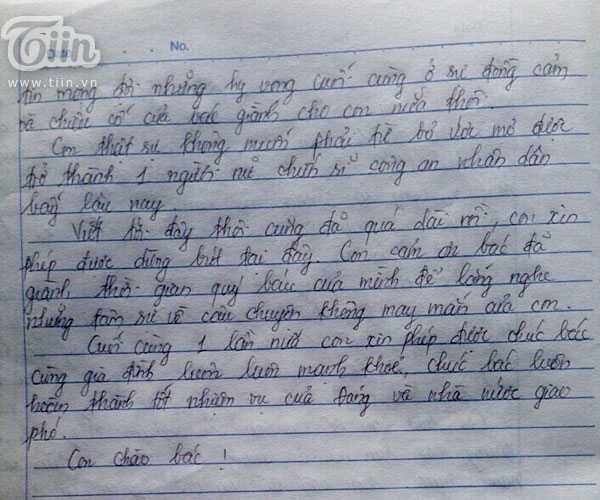 Tiin
www.tiin.vn
No.
mong đợi những hy vong cuối cùng ở sự đồng cảm
và chiếu cố của bác giành cho con nữa thôi.
Con thật sự không muốn phải từ bỏ ước mơ được
trở thành 1 người nữ chiến sĩ công an nhân dân
bấy lâu nay.
Viết tới đây thôi cũng đã quá dài rồi, con xin
phép được dừng bút tại đây. Con cám ơn bác đã
giành thời gian quý báu của mình để lắng nghe
những tâm sự về câu chuyện không may mắn của con.
Cuối cùng 1 lần nữa con xin phép được chúc bác
cùng gia đình luôn luôn mạnh khoẻ, chúc bác luôn
hoàn thành tốt nhiệm vụ của Đảng và nhà nước giao
phó.
Con chào bác !